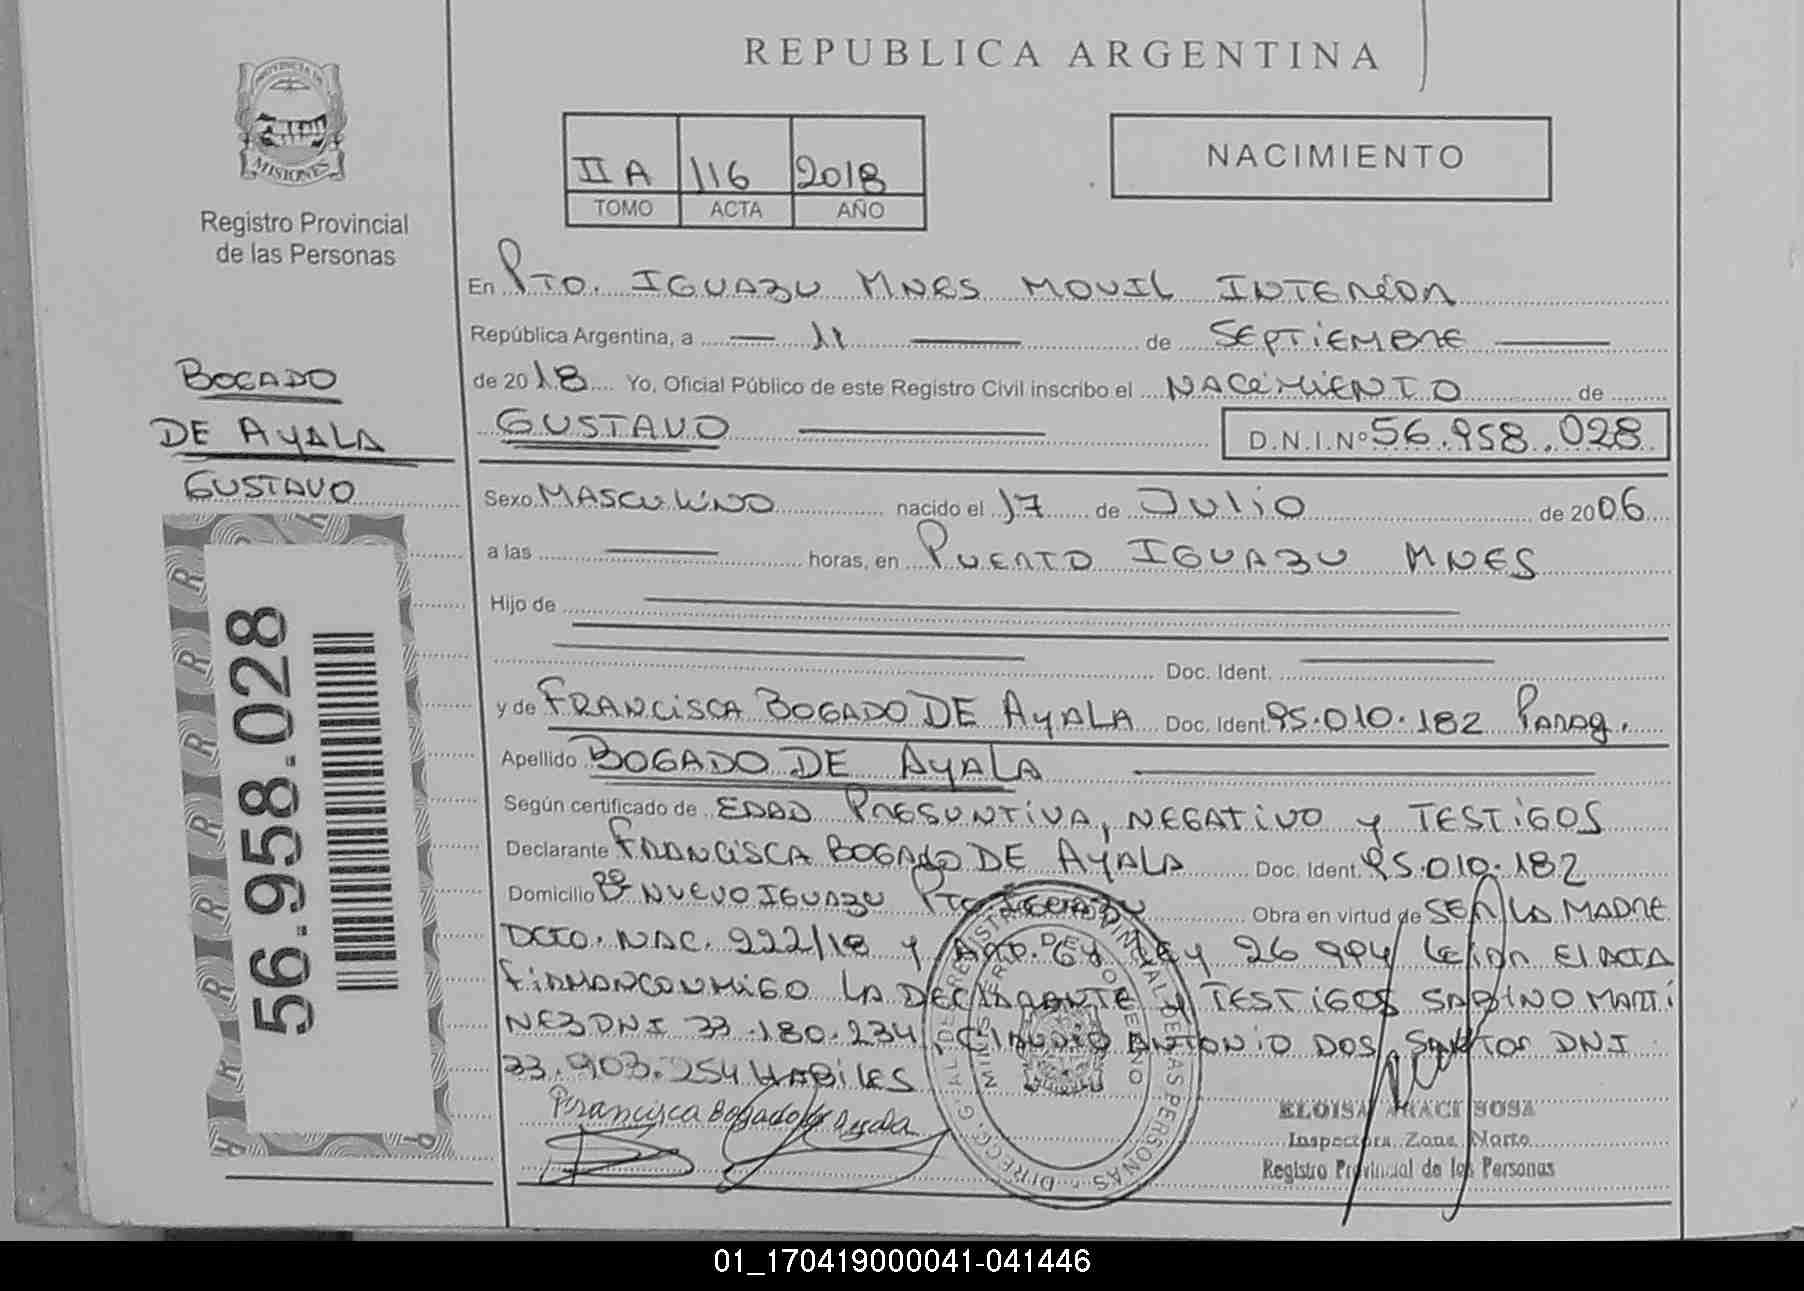 REPUBLICA ARGENTINA
PROVINCIA DE
MISIONES
Registro Provincial
de las Personas
II A 116 2018
TOMO ACTA AÑO
NACIMIENTO
En Pto. IGUAZU MNES MOVIL INTERIOR
República Argentina, a — 11 — de SEPTIEMBRE —
de 2018 Yo, Oficial Público de este Registro Civil inscribo el NACIMIENTO de
GUSTAVO — D.N.I.Nº 56.958.028
BOGADO
DE AYALA
GUSTAVO
56.958.028
Sexo MASCULINO nacido el 17 de JULIO de 2006
a las — horas, en PUERTO IGUAZU MNES
Hijo de —
— Doc. Ident. —
y de FRANCISCA BOGADO DE AYALA Doc. Ident. 95.010.182 PARAG.
Apellido BOGADO DE AYALA —
Según certificado de EDAD PRESUNTIVA, NEGATIVO y TESTIGOS
Declarante FRANCISCA BOGADO DE AYALA Doc. Ident. 95.010.182
Domicilio Bº NUEVO IGUAZU Pto IGUAZU Obra en virtud de SER LA MADRE
DCTO. NAC. 222/18 y LEY 26 994 LEIDA El ACTA
FIRMAN CONMIGO LA DECLARANTE y TESTIGOS SABINO MARTI
NEZ DNI 33.180.234, CLAUDIO ANTONIO DOS SANTOS DNI
33.903.254 HABILES
Francisca Bogado de Ayala
ELOISA ARACI SOSA
Inspectora Zona Norte
Registro Provincial de las Personas
DIRECC. G. AL DE REGISTRO PROVINCIAL DE LAS PERSONAS
MINISTERIO DE GOBIERNO
01_170419000041-041446